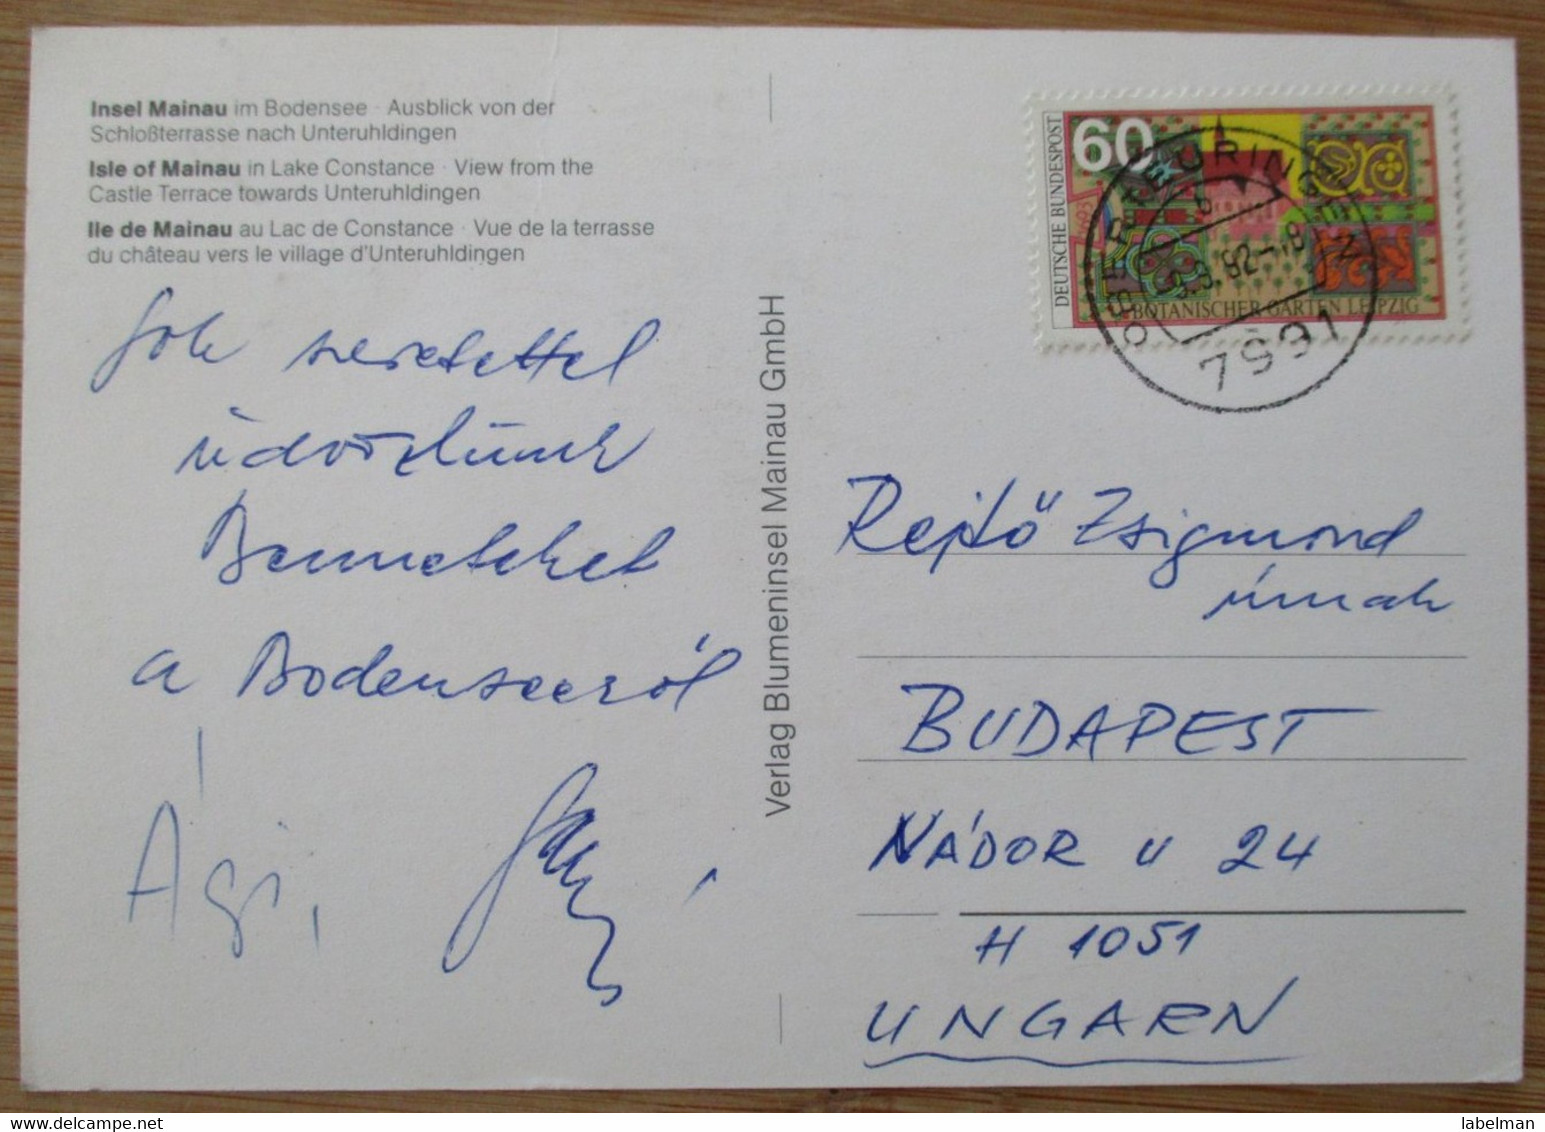 Insel Mainau im Bodensee · Ausblick von der
Schloßterrasse nach Unteruhldingen
Isle of Mainau in Lake Constance · View from the
Castle Terrace towards Unteruhldingen
Ile de Mainau au Lac de Constance · Vue de la terrasse
du château vers le village d'Unteruhldingen
Sok szeretettel
üdvözlünk
Benneteket
a Bodenseeről
Ági,
Verlag Blumeninsel Mainau GmbH
DEUTSCHE BUNDESPOST
60
1693
BOTANISCHER GARTEN LEIPZIG
OBERTEURINGEN
92-18
7991
Rejtő Zsigmond
úrnak
BUDAPEST
NÁDOR u 24
H 1051
UNGARN
labelman